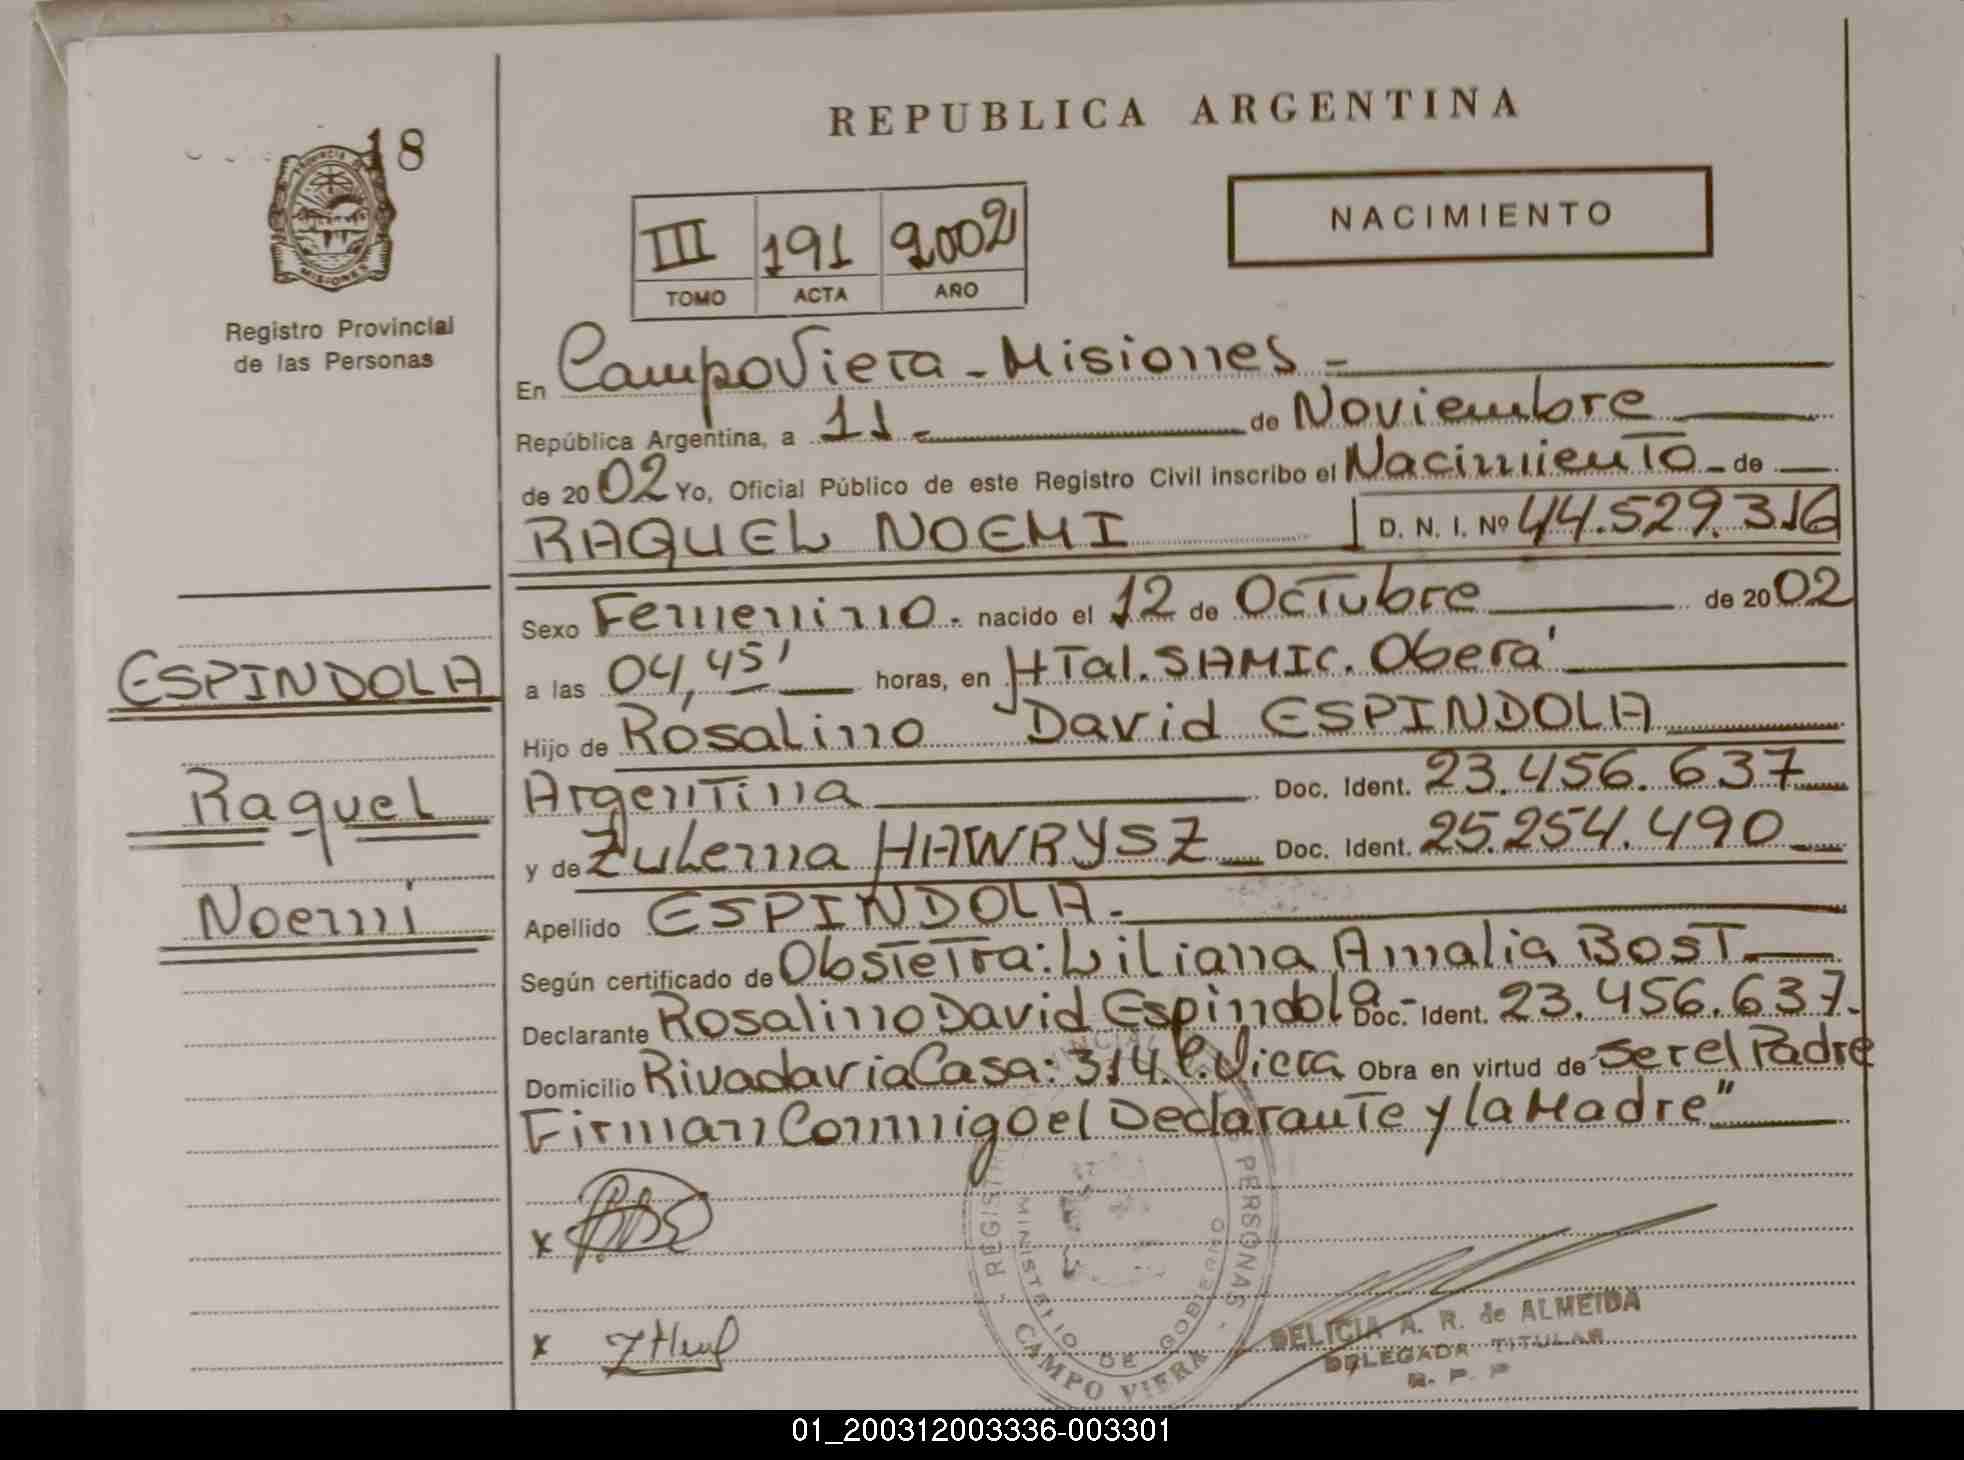 18
REPUBLICA ARGENTINA
PROVINCIA DE
MISIONES
Registro Provincial
de las Personas
III 191 2002
TOMO ACTA AÑO
NACIMIENTO
En Campo Viera - Misiones -
República Argentina, a 11 - de Noviembre
de 2002 Yo, Oficial Público de este Registro Civil inscribo el Nacimiento - de
RAQUEL NOEMI D. N. I. Nº 44.529.316
Sexo Femenino. nacido el 12 de Octubre de 2002
a las 04,45' horas, en HTal. SAMIC. Oberá
Hijo de Rosalino David ESPINDOLA
Argentina Doc. Ident. 23.456.637
y de Zulema HAWRYSZ Doc. Ident. 25.254.490
Apellido ESPINDOLA -
Según certificado de Obstetra: Liliana Amalia BOST
Declarante Rosalino David Espindola - Doc. Ident. 23.456.637.
Domicilio Rivadavia Casa: 314. C. Viera Obra en virtud de ser el Padre
Firman Conmigo el Declarante y la Madre"
ESPINDOLA
Raquel
Noemi
x
x
REGISTRO PROVINCIAL PERSONAS
MINISTERIO DE GOBIERNO
CAMPO VIERA
DELICIA A. R. de ALMEIDA
DELEGADA TITULAR
R. P. P
01_200312003336-003301